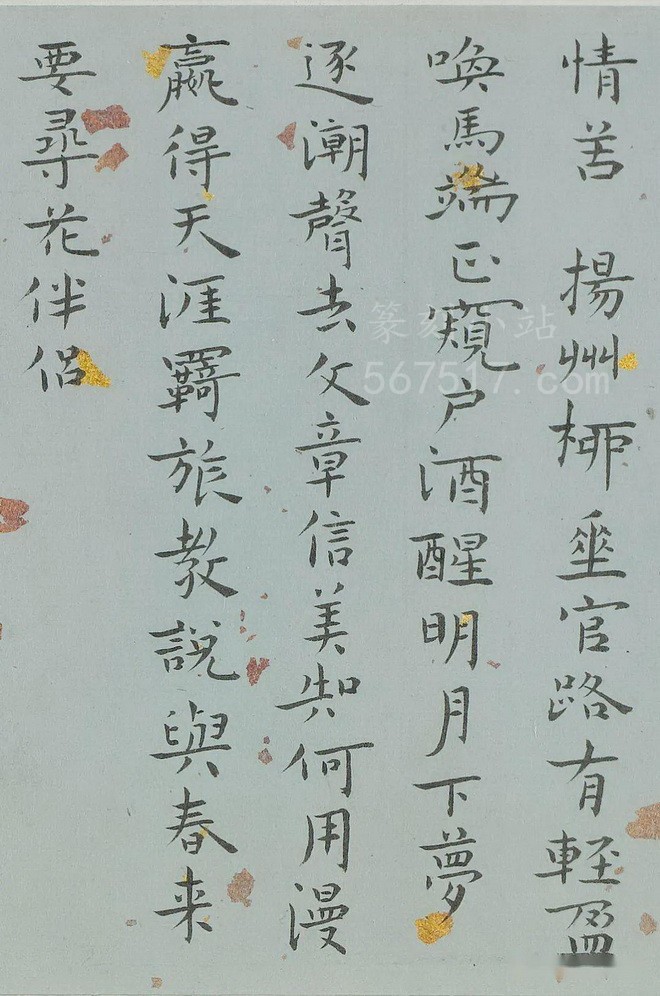 情苦 揚州柳垂官路有輕盈
喚馬端正窺户酒醒明月下夢
逐潮聲去文章信美知何用漫
贏得天涯羈旅教說與春来
要尋花伴侣
篆刻小站
567517.com